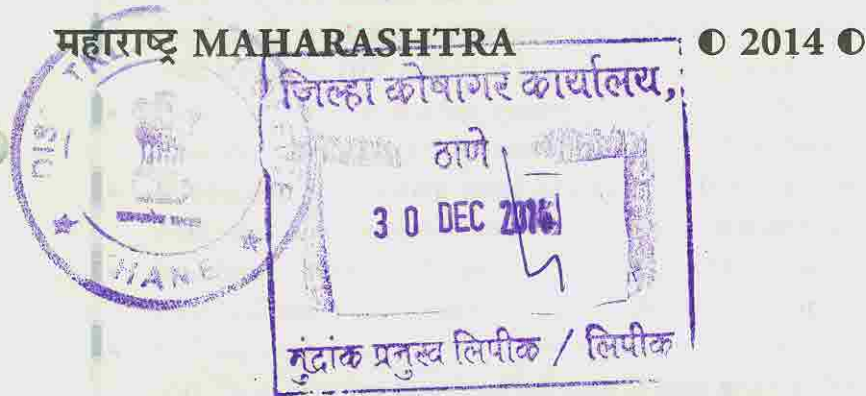 महाराष्ट्र MAHARASHTRA ◐ 2014 ◐
जिल्हा कोषागर कार्यालय,
ठाणे
30 DEC 2014
मुंद्रांक प्रमुख लिपीक / लिपीक
THANE